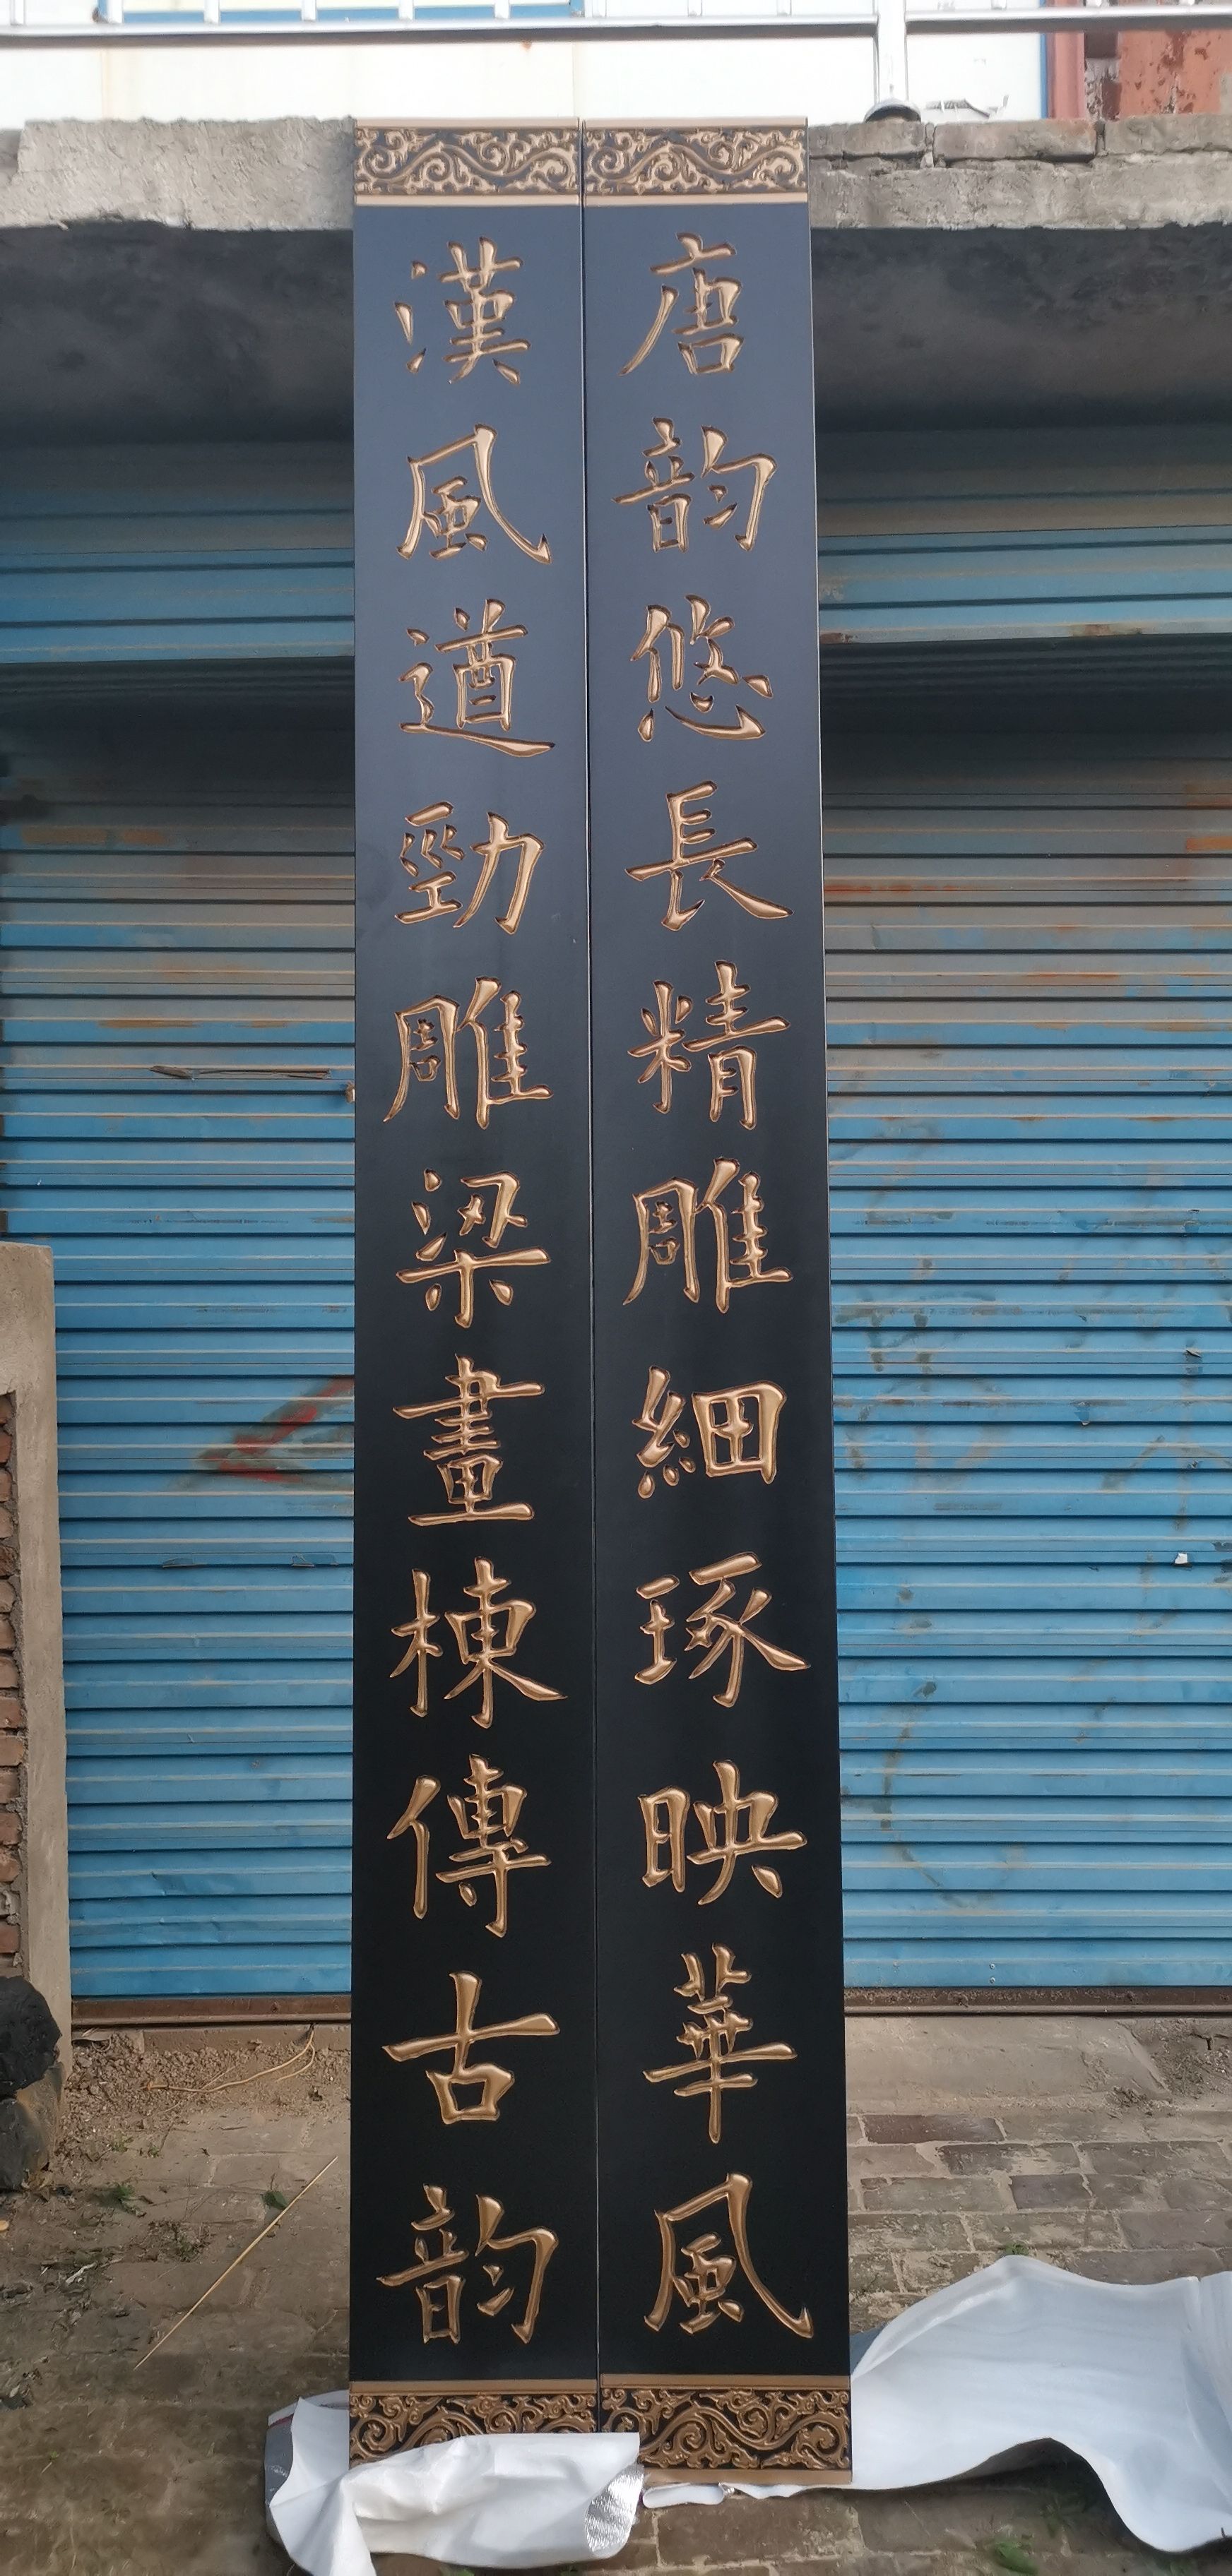 唐韵悠長精雕細琢映華風
漢風遒勁雕梁畫棟傳古韵